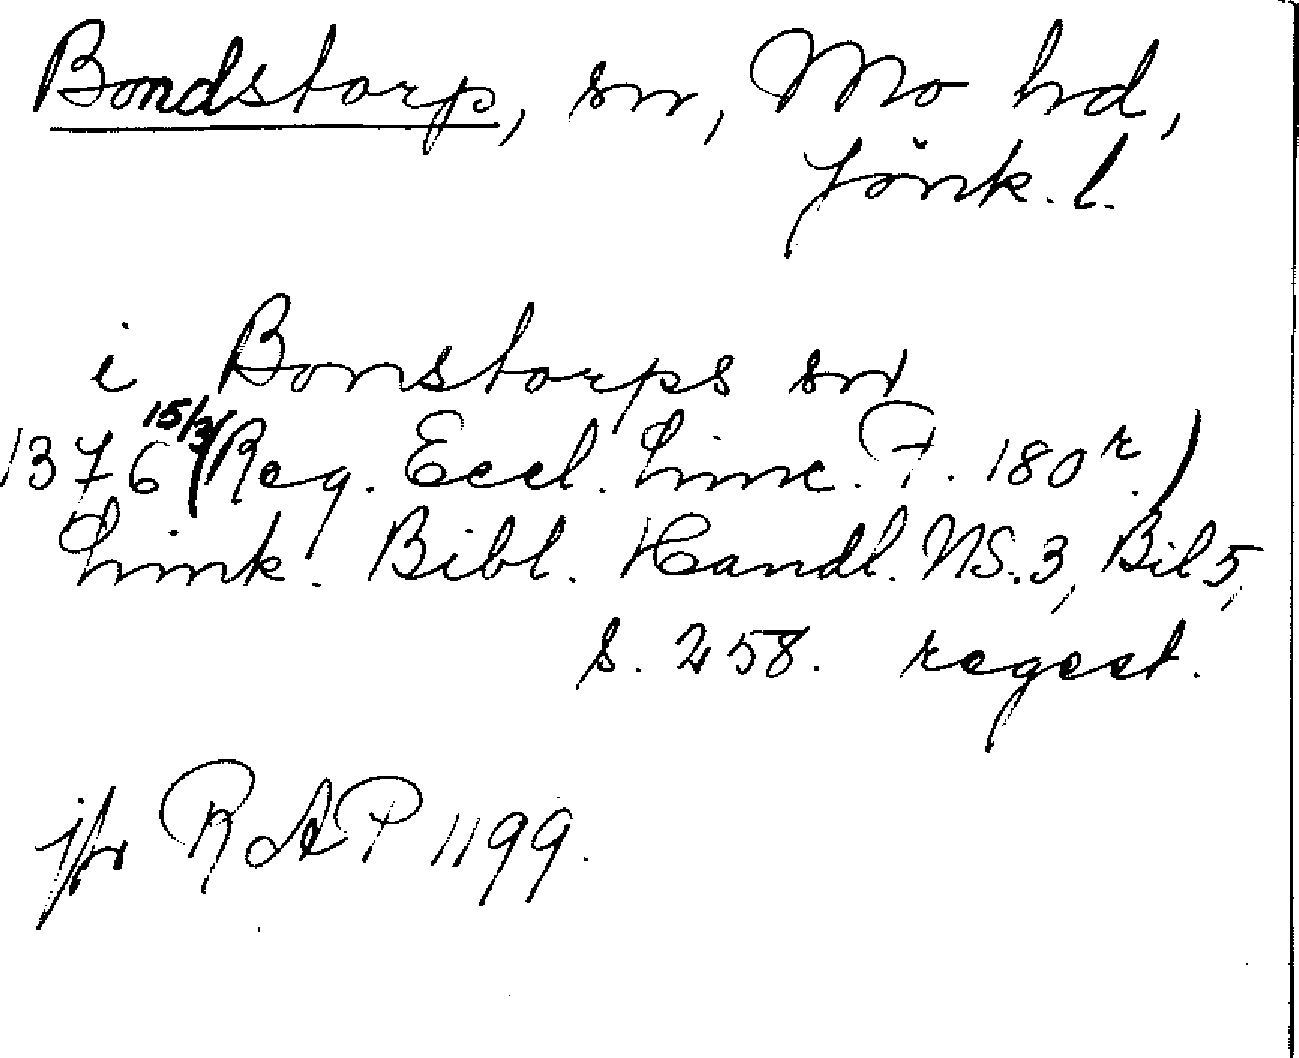 Bondstorp, sn, Mo hd,
Jönk. l.
i Bonstorps sn
1376 15/3 (Reg. Eccl. Linc. F. 180 r.)
Link. Bibl. Handl. NS. 3, Bil 5,
s. 258. regest.
jfr RAP 1199.